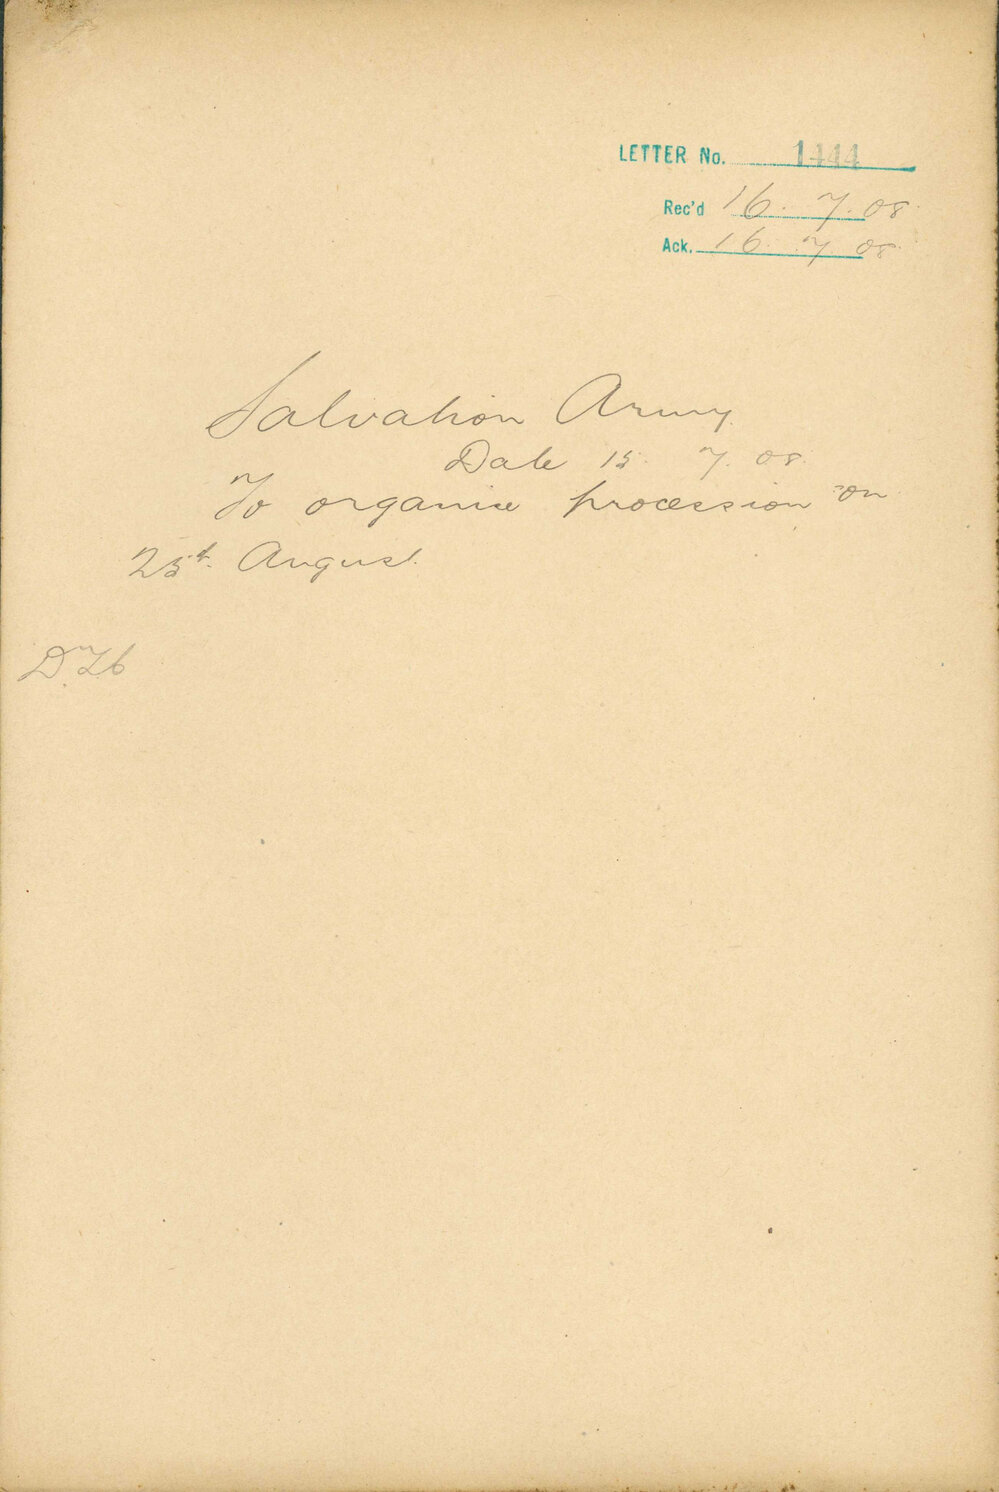 LETTER No. 1444
Rec'd 16. 7. 08
Ack. 16. 7. 08
Salvation Army
Date 15. 7. 08
To organise procession on
25th August.